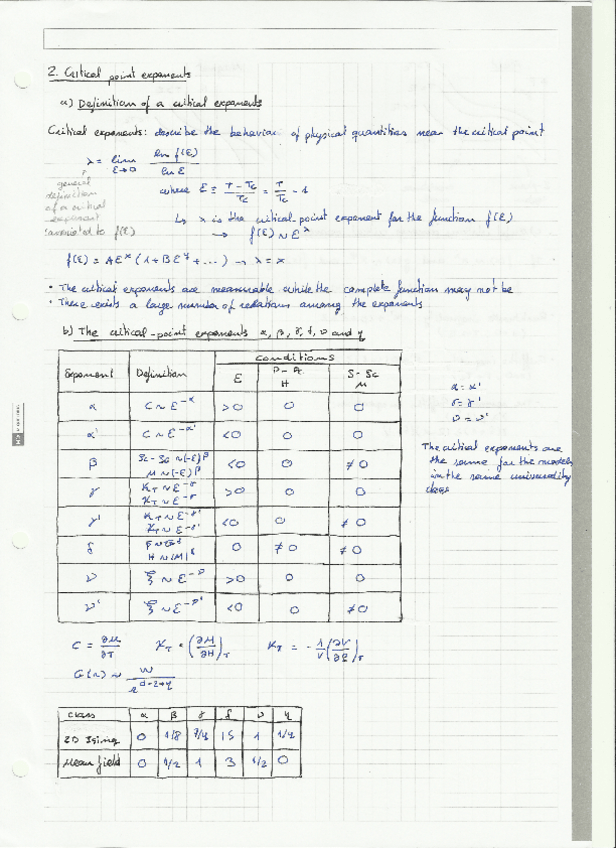 2. Critical point exponents
a) Definition of a critical exponents
Critical exponents: describe the behavior of physical quantities near the critical point
λ = lim ε→0 ln f(ε) / ln ε
general
definition
of a critical
exponent
associated to f(ε)
where ε ≡ (T - Tc)/Tc = T/Tc - 1
↳ λ is the critical point exponent for the function f(ε)
→ f(ε) ~ ε^λ
f(ε) = Aε^x (1 + Bε^y + ...) → λ = x
• The critical exponents are measurable while the complete function may not be
• There exists a large number of relations among the exponents
b) The critical-point exponents α, β, γ, δ, ν and η
Conditions
Exponent Definition ε H M
α C ~ ε^-α >0 0 0
α' C ~ ε^-α' <0 0 0
β M ~ (-ε)^β <0 0 ≠0
γ K_T ~ ε^-γ >0 0 0
γ' K_T ~ ε^-γ' <0 0 ≠0
δ H ~ |M|^δ 0 ≠0 ≠0
ν ξ ~ ε^-ν >0 0 0
ν' ξ ~ ε^-ν' <0 0 ≠0
α = α'
γ = γ'
ν = ν'
The critical exponents are
the same for the models
in the same universality
class
C = ∂u/∂T χ_T = (∂M/∂H)_T K_T = -1/V (∂V/∂P)_T
class α β γ δ ν η
2D Ising 0 1/8 7/4 15 1 1/4
Mean field 0 1/2 1 3 1/2 0